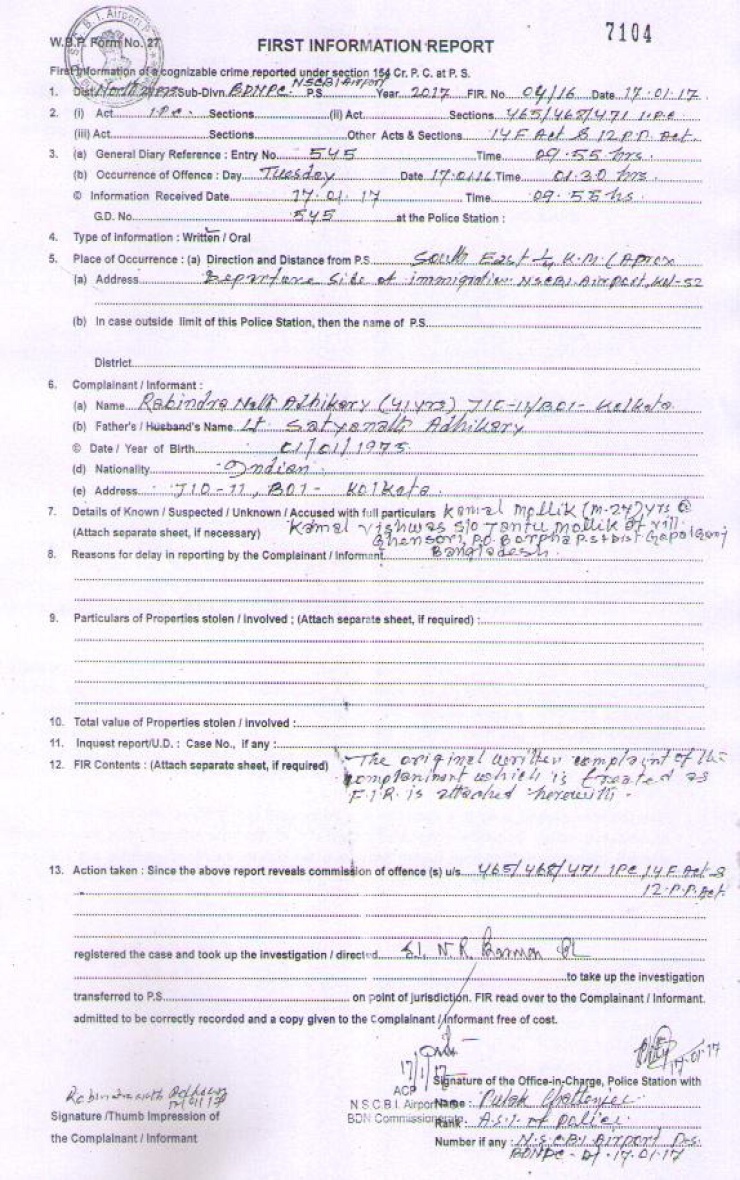 7104
W.B.P. Form No. 27
FIRST INFORMATION REPORT
First Information of a cognizable crime reported under section 154 Cr. P. C. at P. S.
1. Dist. North 24 Sub-Divn. BDNPC P.S. NSCBI Airport Year 2017 FIR. No. 04/16 Date 17.01.17.
2. (i) Act I.P.C. Sections (ii) Act Sections 465/468/471 I.P.C
(iii) Act Sections Other Acts & Sections 14 F Act & 12 P.P. Act.
3. (a) General Diary Reference : Entry No. 545 Time 09.55 hrs.
(b) Occurrence of Offence : Day Tuesday Date 17.01.16 Time 01.30 hrs.
© Information Received Date 17.01.17 Time 09.55 hs.
G.D. No. 545 at the Police Station :
4. Type of Information : Written / Oral
5. Place of Occurrence : (a) Direction and Distance from P.S. South East K.M. (Aprox
(a) Address Departure Side of immigration NSCBI Airport, Kol-52
(b) In case outside limit of this Police Station, then the name of P.S.
District
6. Complainant / Informant :
(a) Name Rabindra Nath Adhikary (41 yrs) JIO-II/BOI- Kolkata
(b) Father's / Husband's Name Lt. Satyanath Adhikary
© Date / Year of Birth 01/01/1975
(d) Nationality Indian.
(e) Address JIO-II, BOI- Kolkata.
7. Details of Known / Suspected / Unknown / Accused with full particulars Kamal Mollik (M-24) yrs @
(Attach separate sheet, if necessary) Kamal Vishwas S/O Jantu Mollik of vill-
Ghensori, P.O. Borpha P.S+Dist- Gopalgonj
8. Reasons for delay in reporting by the Complainant / Informent Bangladesh.
9. Particulars of Properties stolen / Involved ; (Attach separate sheet, if required) :
10. Total value of Properties stolen / involved :
11. Inquest report/U.D. : Case No., if any :
12. FIR Contents : (Attach separate sheet, if required) The original written complaint of the
complaninant which is treated as
F.I.R. is attached herewith.
13. Action taken : Since the above report reveals commission of offence (s) u/s 465/468/471 IPC, 14 F. Act &
12.P.P.Act.
registered the case and took up the investigation / directed S.I. N.R. Barman
to take up the investigation
transferred to P.S. on point of jurisdiction. FIR read over to the Complainant / Informant.
admitted to be correctly recorded and a copy given to the Complainant / Informant free of cost.
17/1/17
17.01.17
Rabindranath Adhikary
17/01/17
Signature /Thumb Impression of
the Complainant / Informant
ACP
N.S.C.B.I. Airport
BDN Commissionerate
Signature of the Office-in-Charge, Police Station with
Name : Pulak Chatterjee
Rank A.S.I. of Police
Number if any : N.S.C.B.I Airport P.S.
BDNPC - Dt. 17.01.17